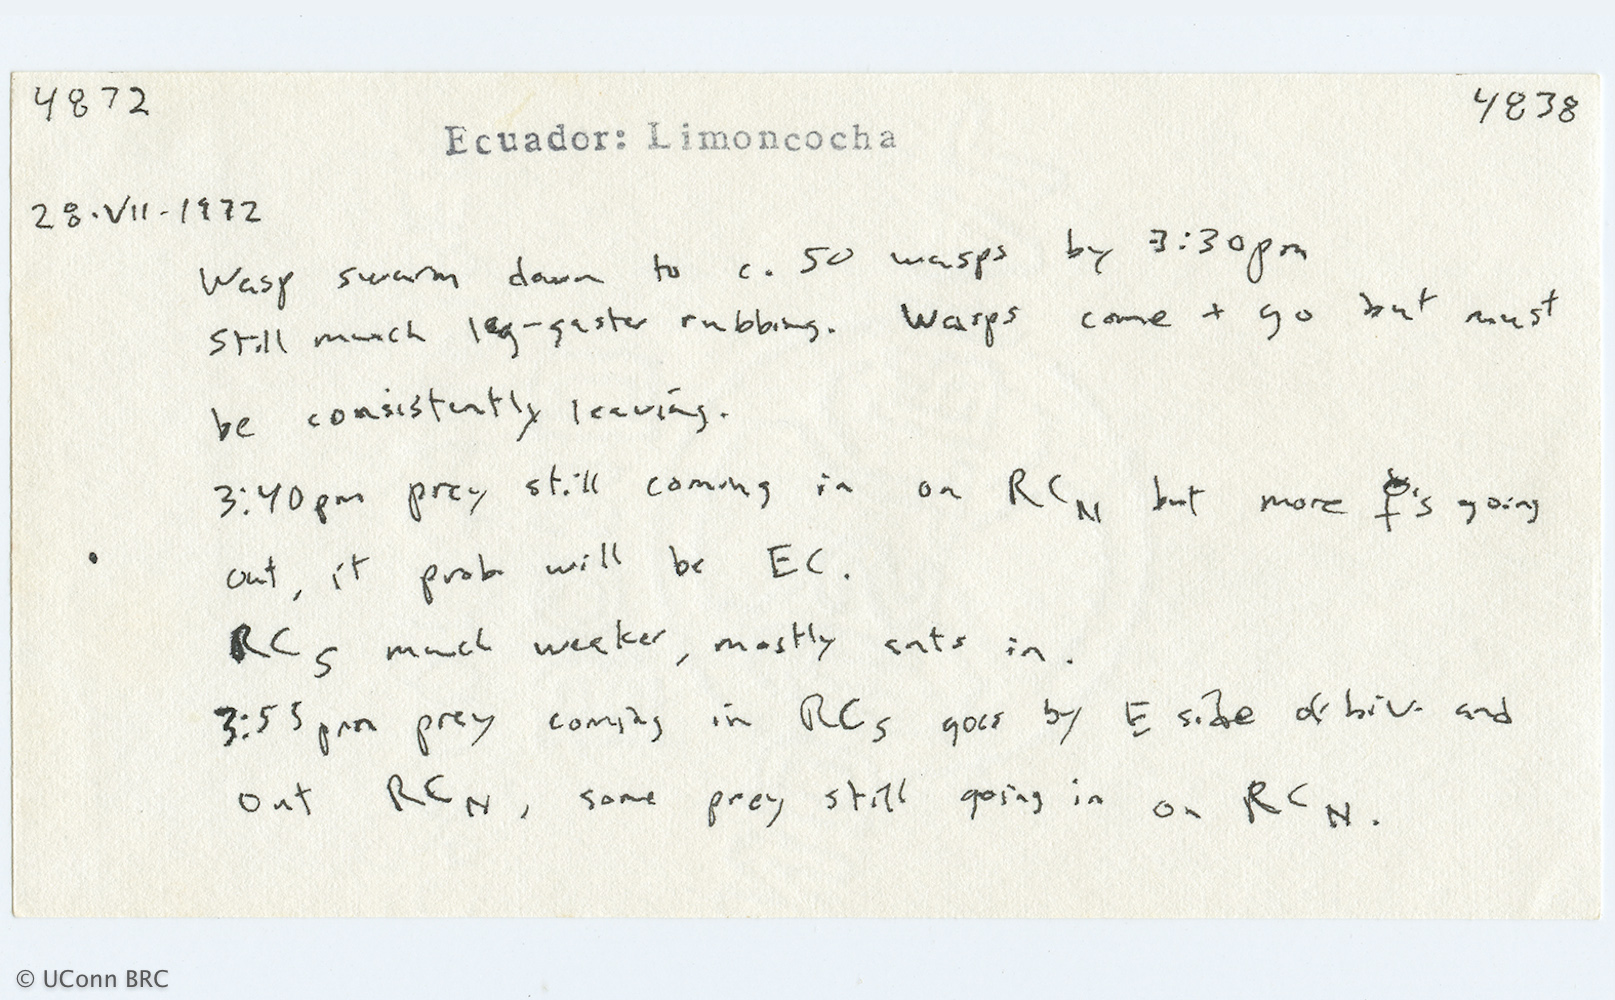 4872
4838
Ecuador: Limoncocha
28·VII-1972
Wasp swarm down to c. 50 wasps by 3:30pm
Still much leg-gaster rubbing. Wasps come + go but must
be consistently leaving.
3:40pm prey still coming in on RCN but more ☿'s going
out, it prob will be EC.
RCS much weaker, mostly ants in.
3:55pm prey coming in RCS goes by E side of biv. and
out RCN, some prey still going in on RCN.
© UConn BRC